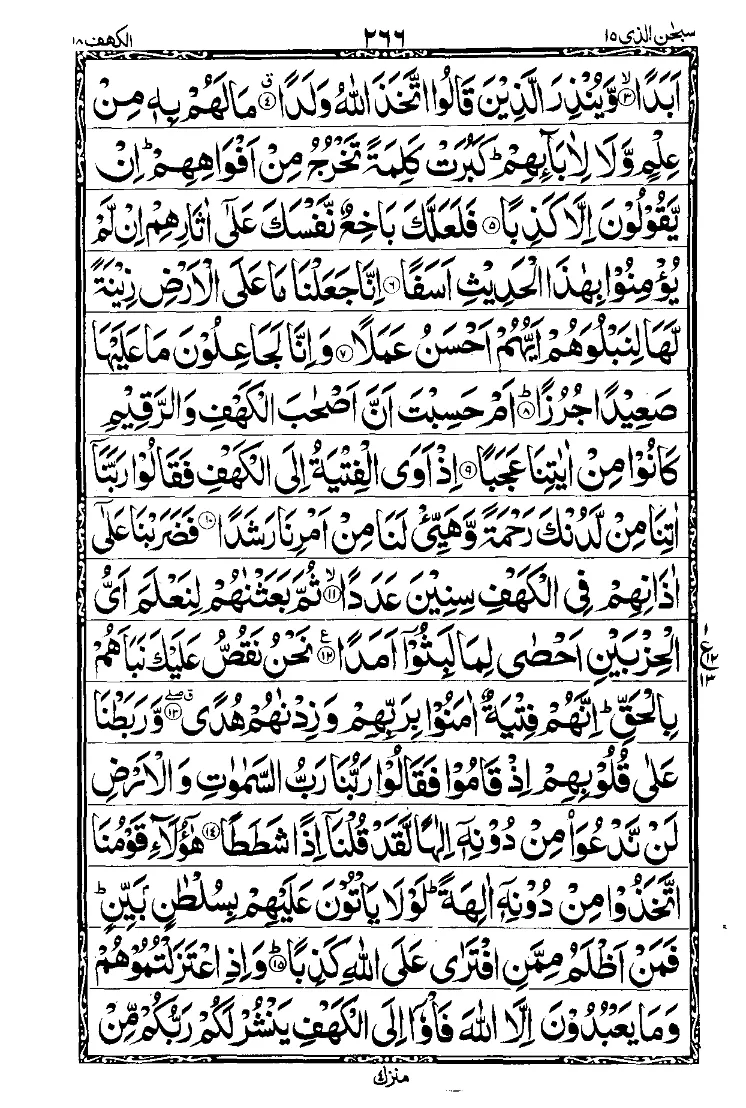 سبحٰن الذی ۱۵ ۲۶۶ الكهف ۱۸
اَبَدًا ۙ﴿۳﴾ وَّيُنْذِرَ الَّذِيْنَ قَالُوا اتَّخَذَ اللّٰهُ وَلَدًا ۗ﴿۴﴾ مَا لَهُمْ بِهٖ مِنْ
عِلْمٍ وَّلَا لِاٰبَآىِٕهِمْ ؕ كَبُرَتْ كَلِمَةً تَخْرُجُ مِنْ اَفْوَاهِهِمْ ؕ اِنْ
يَّقُوْلُوْنَ اِلَّا كَذِبًا ﴿۵﴾ فَلَعَلَّكَ بَاخِعٌ نَّفْسَكَ عَلٰۤى اٰثَارِهِمْ اِنْ لَّمْ
يُؤْمِنُوْا بِهٰذَا الْحَدِيْثِ اَسَفًا ﴿۶﴾ اِنَّا جَعَلْنَا مَا عَلَى الْاَرْضِ زِيْنَةً
لَّهَا لِنَبْلُوَهُمْ اَيُّهُمْ اَحْسَنُ عَمَلًا ﴿۷﴾ وَاِنَّا لَجَاعِلُوْنَ مَا عَلَيْهَا
صَعِيْدًا جُرُزًا ؕ﴿۸﴾ اَمْ حَسِبْتَ اَنَّ اَصْحٰبَ الْكَهْفِ وَالرَّقِيْمِ
كَانُوْا مِنْ اٰيٰتِنَا عَجَبًا ﴿۹﴾ اِذْ اَوَى الْفِتْيَةُ اِلَى الْكَهْفِ فَقَالُوْا رَبَّنَاۤ
اٰتِنَا مِنْ لَّدُنْكَ رَحْمَةً وَّهَيِّئْ لَنَا مِنْ اَمْرِنَا رَشَدًا ﴿۱۰﴾ فَضَرَبْنَا عَلٰۤى
اٰذَانِهِمْ فِي الْكَهْفِ سِنِيْنَ عَدَدًا ۙ﴿۱۱﴾ ثُمَّ بَعَثْنٰهُمْ لِنَعْلَمَ اَيُّ
الْحِزْبَيْنِ اَحْصٰى لِمَا لَبِثُوْۤا اَمَدًا ﴿۱۲﴾ ع نَحْنُ نَقُصُّ عَلَيْكَ نَبَاَهُمْ
۱ ع ۱۲ ۱۳
بِالْحَقِّ ؕ اِنَّهُمْ فِتْيَةٌ اٰمَنُوْا بِرَبِّهِمْ وَزِدْنٰهُمْ هُدًى ۗۖ﴿۱۳﴾ وَّرَبَطْنَا
عَلٰى قُلُوْبِهِمْ اِذْ قَامُوْا فَقَالُوْا رَبُّنَا رَبُّ السَّمٰوٰتِ وَالْاَرْضِ
لَنْ نَّدْعُوَا۟ مِنْ دُوْنِهٖۤ اِلٰهًا لَّقَدْ قُلْنَاۤ اِذًا شَطَطًا ﴿۱۴﴾ هٰۤؤُلَآءِ قَوْمُنَا
اتَّخَذُوْا مِنْ دُوْنِهٖۤ اٰلِهَةً ؕ لَوْلَا يَاْتُوْنَ عَلَيْهِمْ بِسُلْطٰنٍۭ بَيِّنٍ ؕ
فَمَنْ اَظْلَمُ مِمَّنِ افْتَرٰى عَلَى اللّٰهِ كَذِبًا ؕ﴿۱۵﴾ وَاِذِ اعْتَزَلْتُمُوْهُمْ
وَمَا يَعْبُدُوْنَ اِلَّا اللّٰهَ فَاْوٗۤا اِلَى الْكَهْفِ يَنْشُرْ لَكُمْ رَبُّكُمْ مِّنْ
منزل ۴